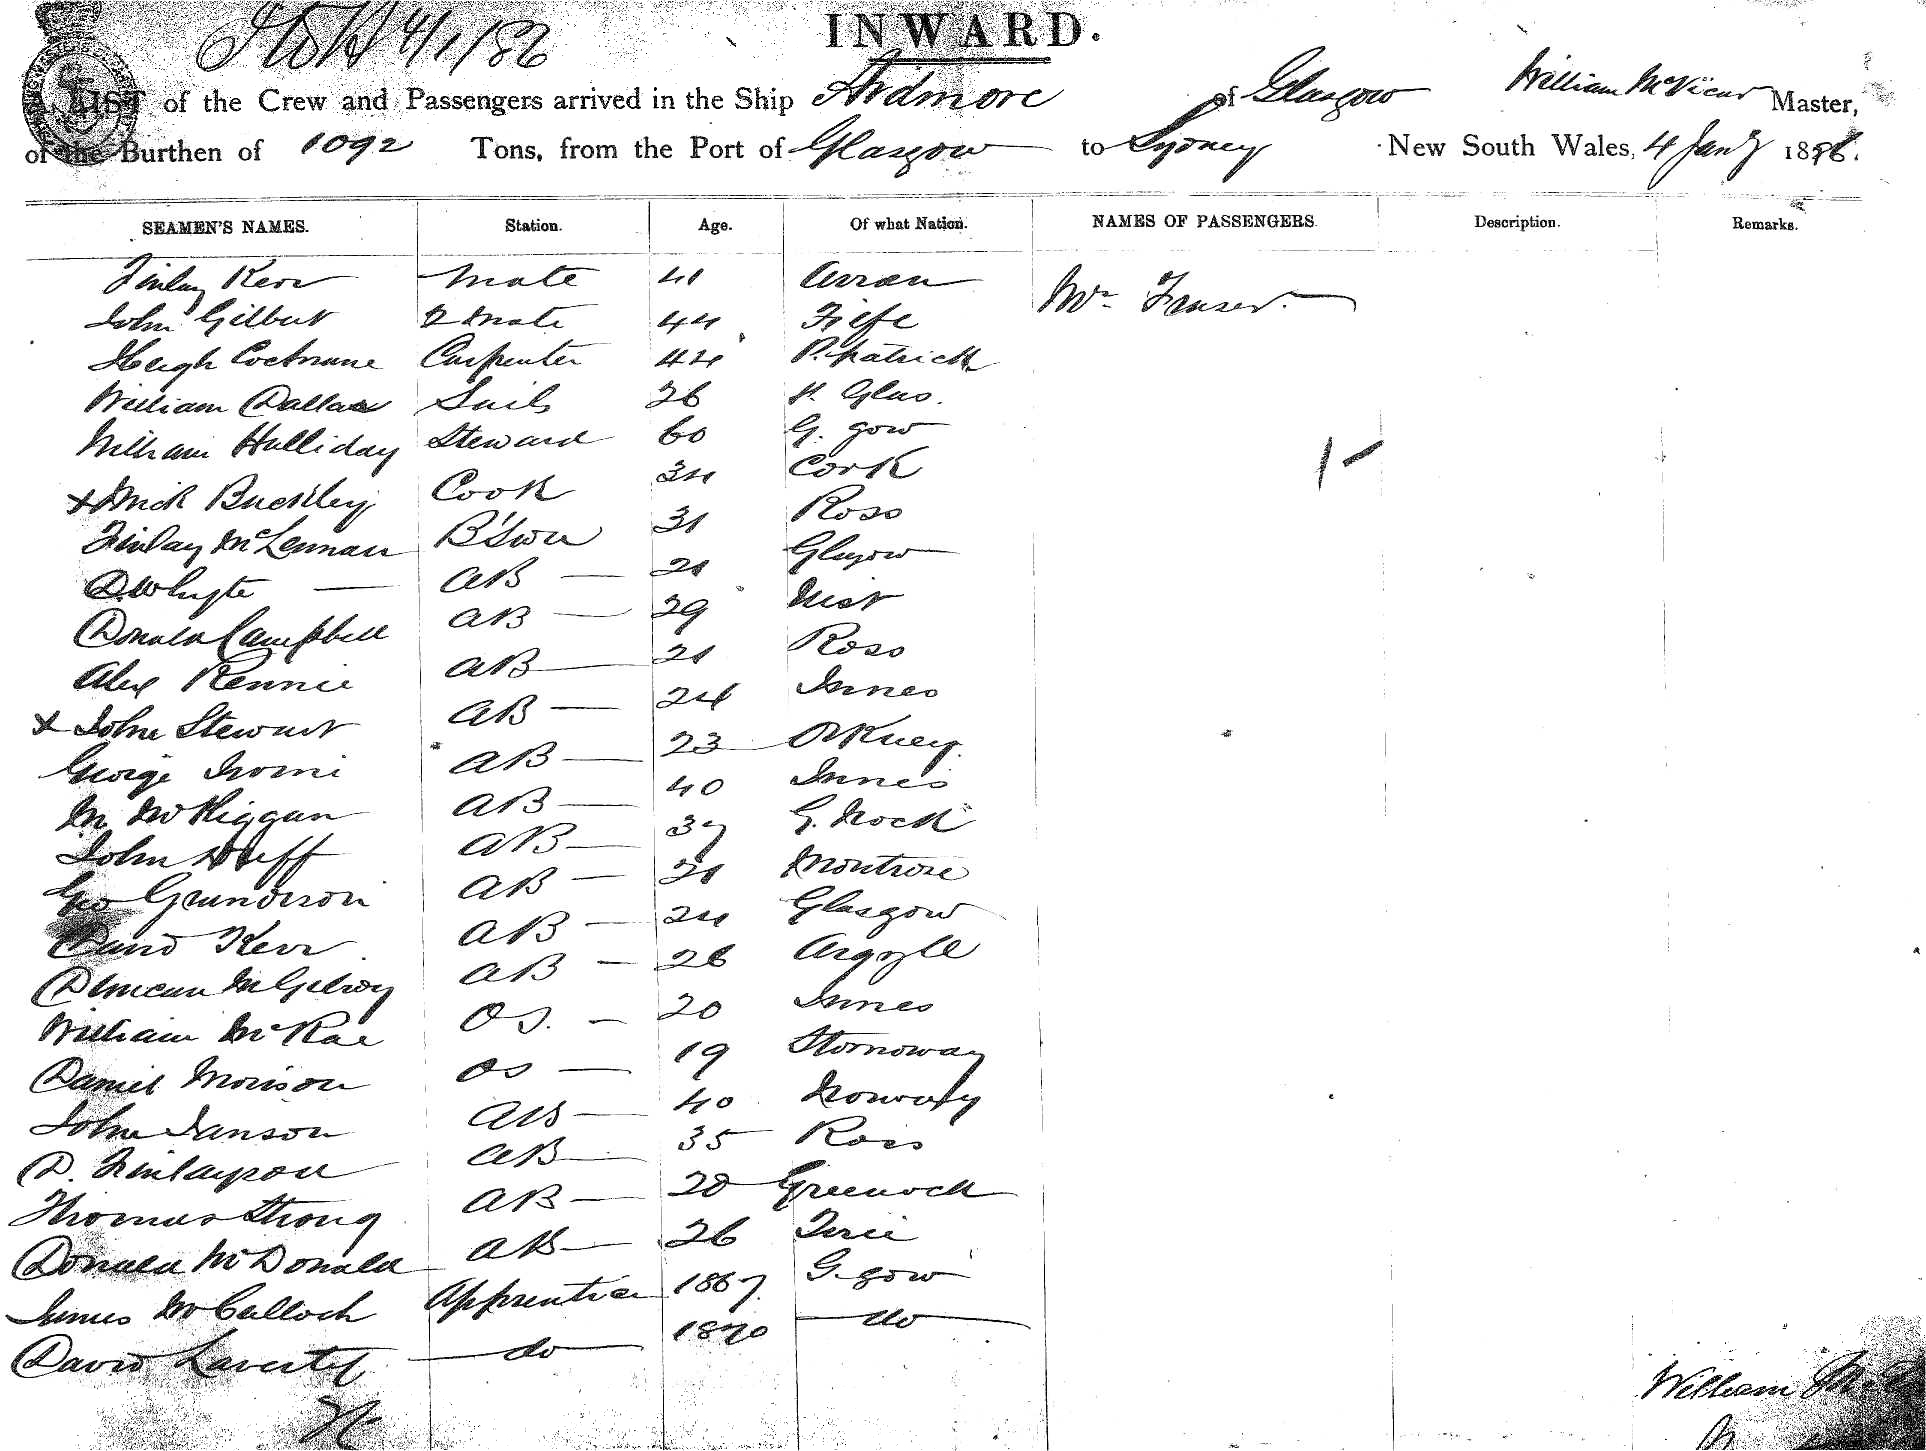 4/1/86
INWARD.
A LIST of the Crew and Passengers arrived in the Ship Ardmore of Glasgow William McVicar Master,
of the Burthen of 1092 Tons, from the Port of Glasgow to Sydney New South Wales, 4 Jany 1886.
SEAMEN'S NAMES. Station. Age. Of what Nation. NAMES OF PASSENGERS. Description. Remarks.
Finlay Kerr Mate 41 Arran Mr Fraser.
John Gilbert 2 Mate 44 Fife
Hugh Cochrane Carpenter 44 P. patrick
William Dallas Sails 26 P. Glas.
William Halliday Steward 60 G. gow
x Mick Buckley Cook 34 Cork
Finlay McLennan B'Swn 31 Ross
D. Whyte AB 21 Glasgow
Donald Campbell AB 29 Uist
Alex Rennie AB 21 Ross
x John Stewart AB 24 Innes
George AB 23 Orkney.
M McKiggan AB 40 Innes
John Duff AB 37 G. nock
Geo Grunderson AB 21 Montrose
David Kerr AB 24 Glasgow
Duncan McGilroy AB 26 Argyle
William McRae OS. 20 Innes
Daniel Morison OS 19 Stornoway
John Janson AB 40 Norway
D. Finlayson AB 35 Ross
Thomas Strong AB 20 Greenock
Donald McDonald AB 26 Tiree
James McCulloch Apprentice 1867. G. gow
David Laverty do 1870 do
William